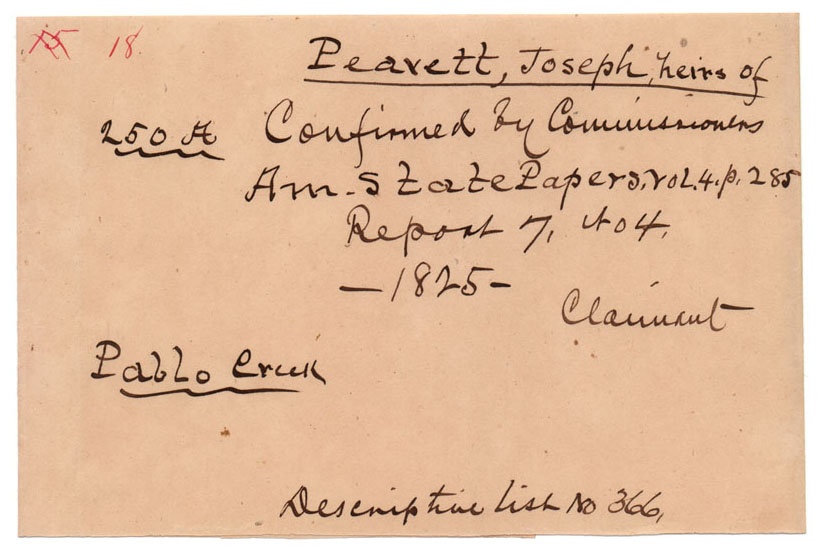 18.
Peavett, Joseph, heirs of
250 A Confirmed by Commissioners
Am. State Papers, vol. 4. p. 285
Report 7, No 4,
— 1825 —
Claimant
Pablo Creek
Descriptive list No 366,